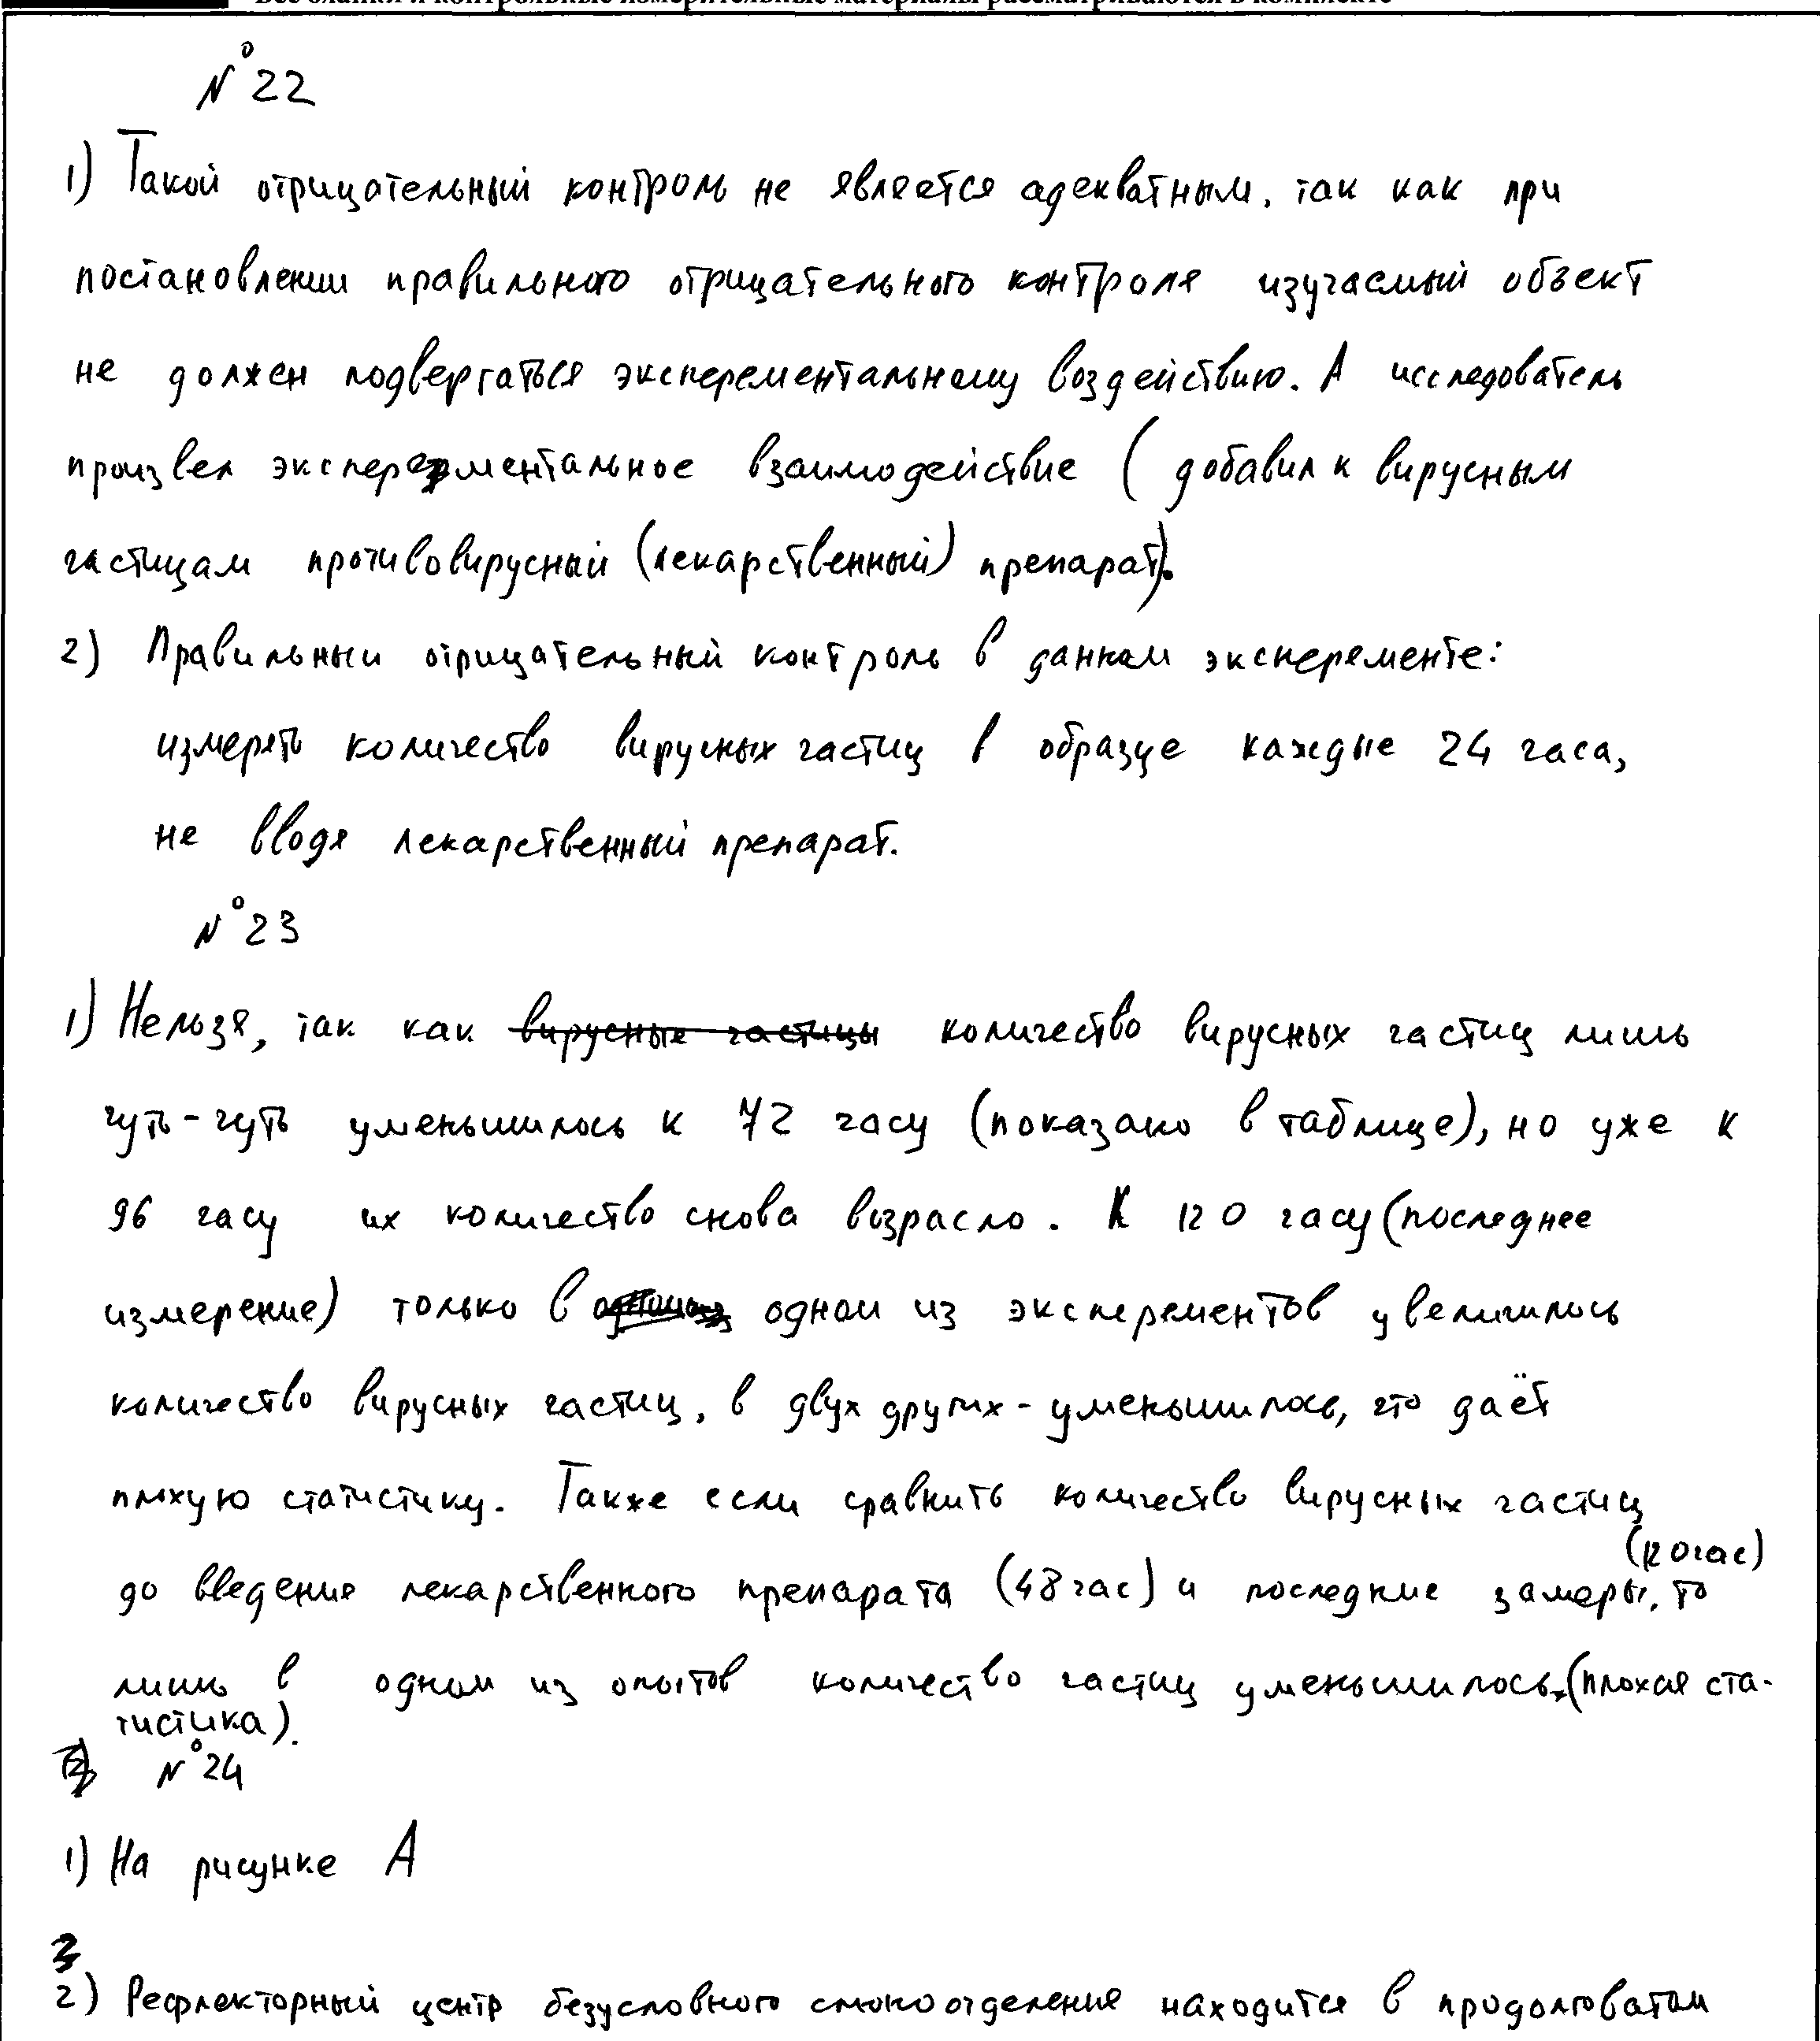 Все бланки и контрольные измерительные материалы рассматриваются в комплекте
№22
1) Такой отрицательный контроль не является адекватным, так как при
постановлении правильного отрицательного контроля изучаемый объект
не должен подвергаться эксперементальному воздействию. А исследователь
произвел эксперементальное взаимодействие (добавил к вирусным
частицам противовирусный (лекарственный) препарат).
2) Правильный отрицательный контроль в данном эксперементе:
измерять количество вирусных частиц в образце каждые 24 часа,
не вводя лекарственный препарат.
№23
1) Нельзя, так как вирусные частицы количество вирусных частиц лишь
чуть-чуть уменьшилось к 72 часу (показано в таблице), но уже к
96 часу их количество снова возрасло. К 120 часу (последнее
измерение) только в одном из эксперементов увеличилось
количество вирусных частиц, в двух других - уменьшилось, что даёт
плохую статистику. Также если сравнить количество вирусных частиц
(120час)
до введения лекарственного препарата (48 час) и последние замеры, то
лишь в одном из опытов количество частиц уменьшилось (плохая ста-
тистика).
№24
1) На рисунке А
2) Рефлекторный центр безусловного слюноотделения находится в продолговатом